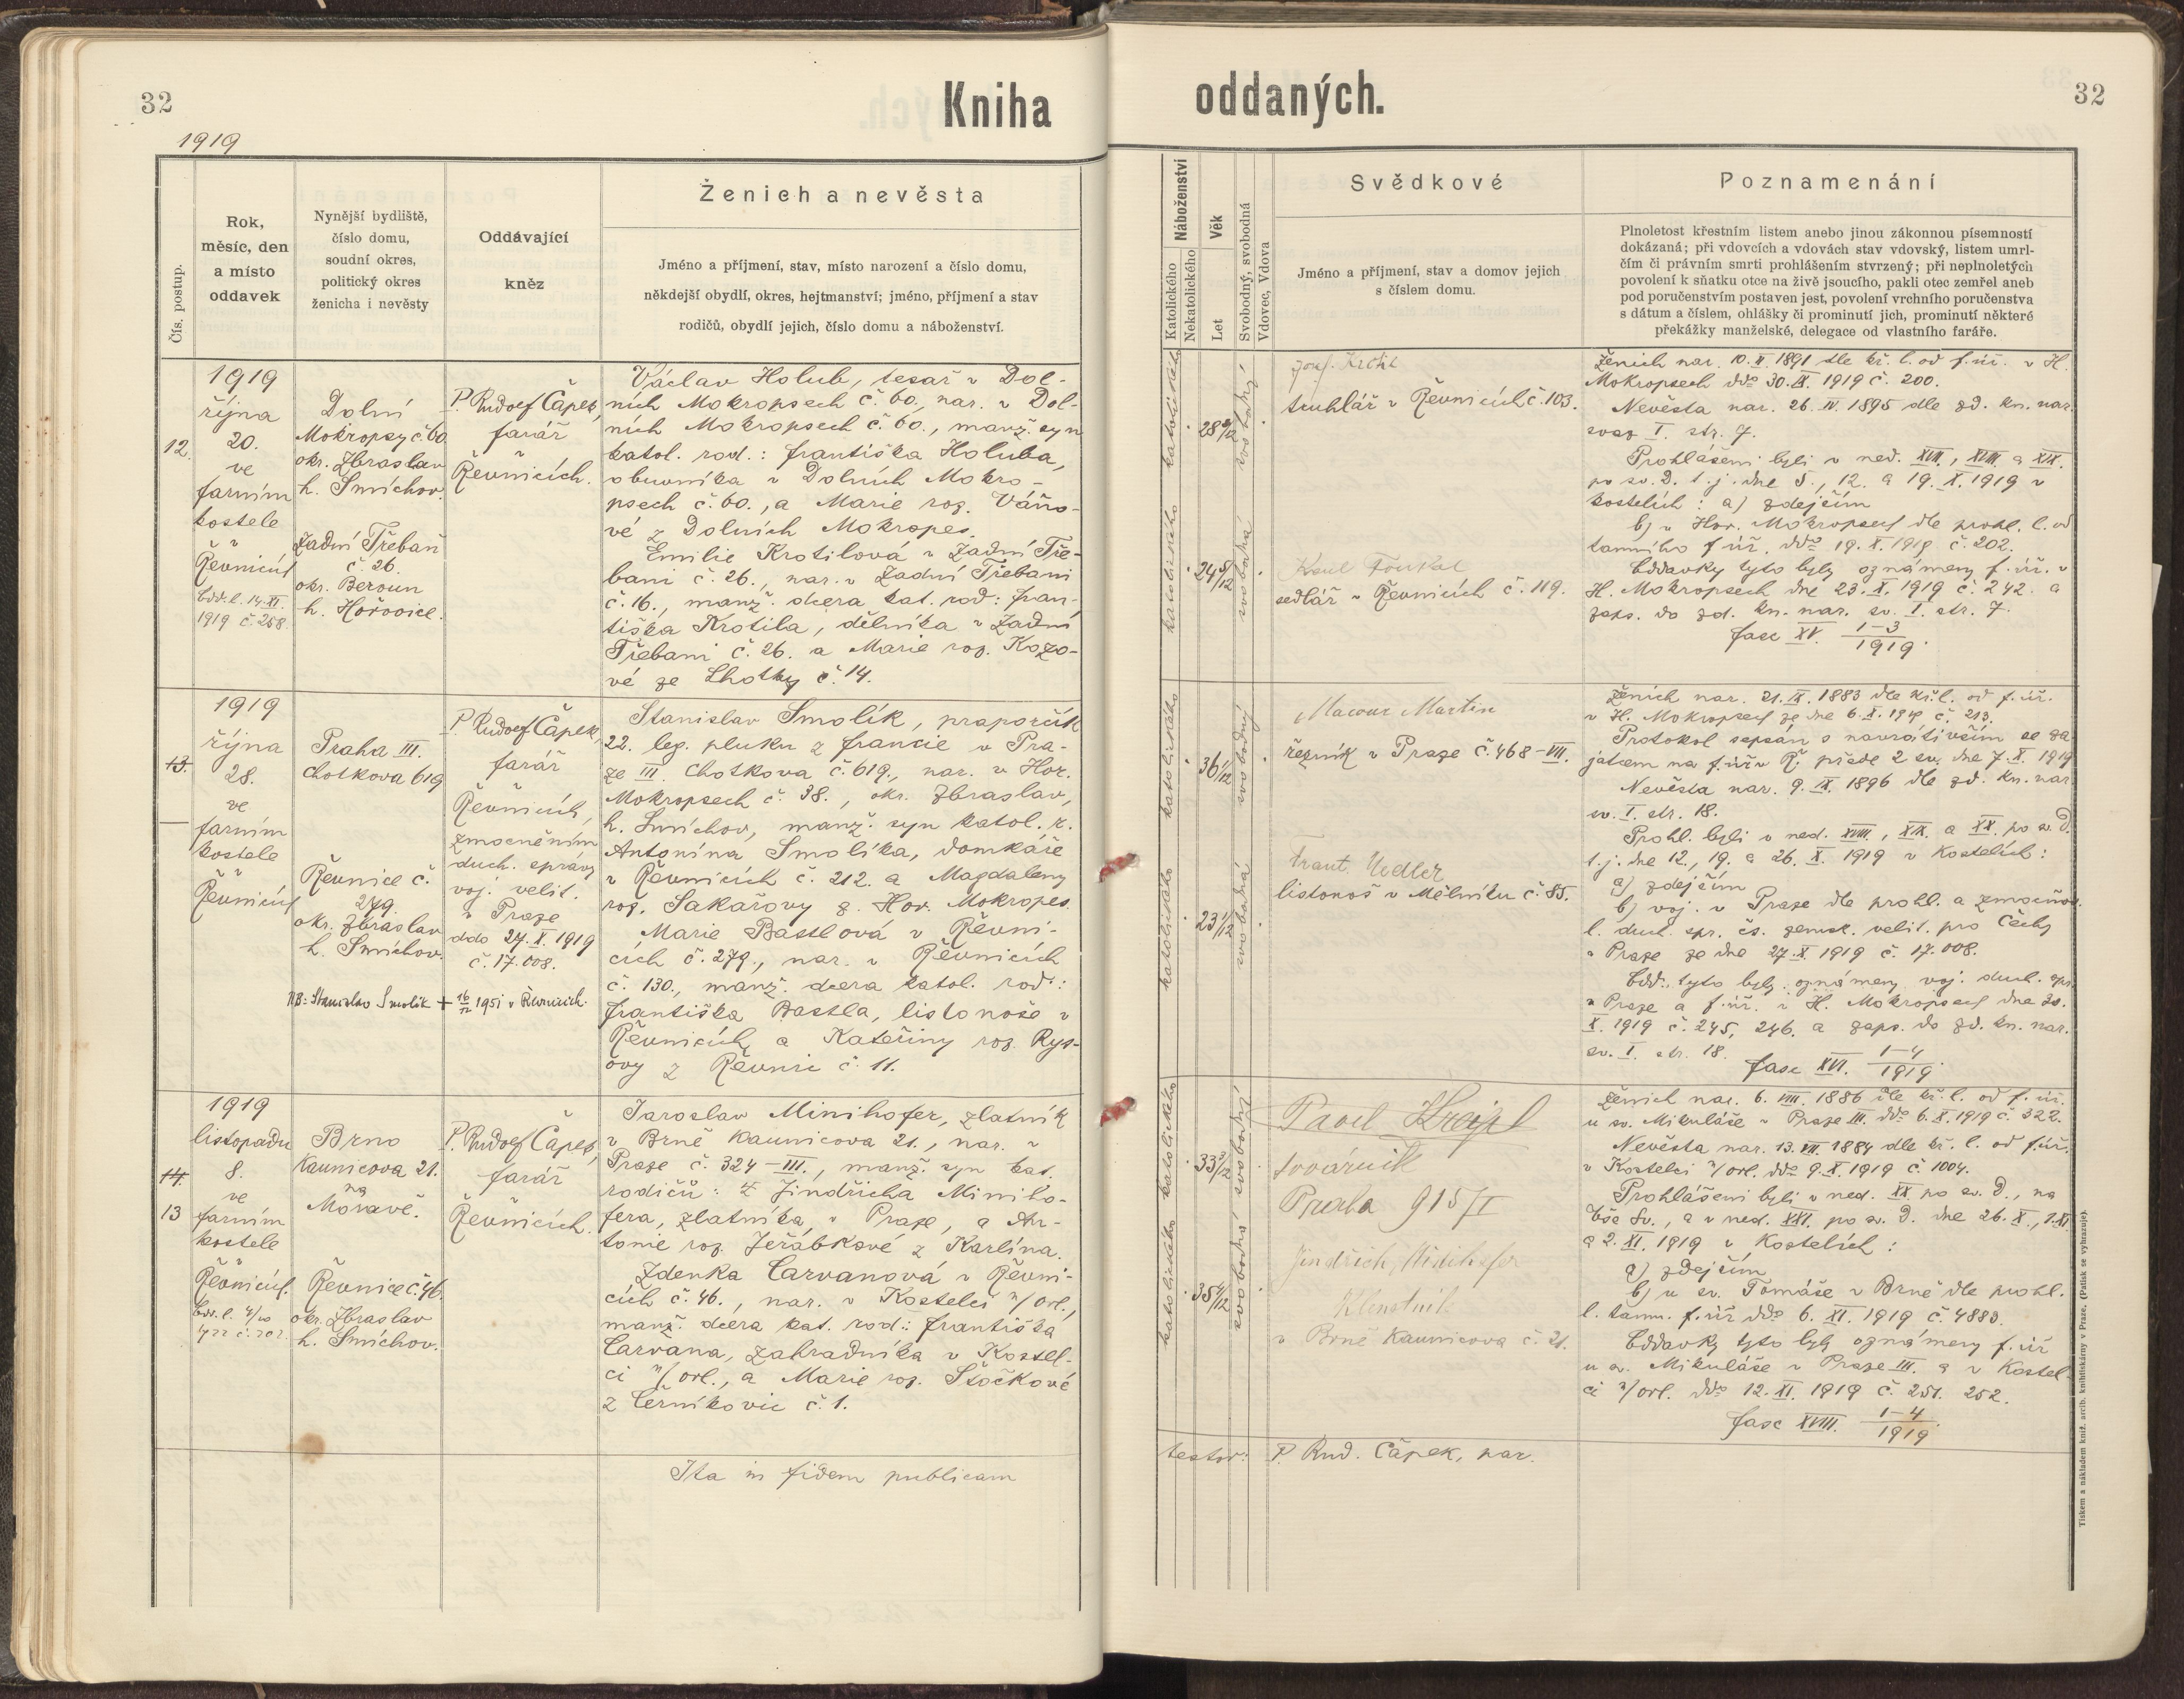 32
Kniha
1919
Čís. postup.
Rok,
měsíc, den
a místo
oddavek
Nynější bydliště,
číslo domu,
soudní okres,
politický okres
ženicha i nevěsty
Oddávající
kněz
Ženich a nevěsta
Jméno a příjmení, stav, místo narození a číslo domu,
někdejší obydlí, okres, hejtmanství; jméno, příjmení a stav
rodičů, obydlí jejich, číslo domu a náboženství.
12.
1919
října
20.
ve
farním
kostele
v
Řevnicích
Odd. l. 14.XI.
1919 č. 258.
Dolní
Mokropsy č. 60
okr. Zbraslav
h. Smíchov.
Zadní Třebaň
č. 26.
okr. Beroun
h. Hořovice.
P. Rudolf Čapek,
farář
v
Řevnicích.
Václav Holub, tesař v Dol-
ních Mokropsech č. 60, nar. v Dol-
ních Mokropsech č. 60., manž. syn
katol. rod.: Františka Holuba,
obuvníka v Dolních Mokro-
psech č. 60., a Marie roz. Váňo-
vé z Dolních Mokropes.
Emilie Krotilová v Zadní Tře-
bani č. 26., nar. v Zadní Třebani
č. 16., manž. dcera kat. rod: Fran-
tiška Krotila, dělníka v Zadní
Třebani č. 26. a Marie roz. Kozo-
vé ze Lhotky č. 14.
13.
1919
října
28.
ve
farním
kostele
v
Řevnicích
Praha III.
Chotkova 619
Řevnice č.
279.
okr. Zbraslav
h. Smíchov.
P. Rudolf Čapek,
farář
v
Řevnicích,
zmocněním
duch. správy
voj. velit.
v Praze
ddo 27.X.1919
č. 17.008.
NB: Stanislav Smolík + 16/12 1951 v Řevnicích.
Stanislav Smolík, praporčík
22. leg. pluku z Francie v Pra-
ze III. Chotkova č. 619., nar. v Hor.
Mokropsech č. 38., okr. Zbraslav,
h. Smíchov, manž. syn katol. r.
Antonína Smolíka, domkáře
v Řevnicích č. 212. a Magdaleny
roz. Sakařovy z Hor. Mokropes.
Marie Bastlová v Řevni-
cích č. 279., nar. v Řevnicích
č. 130., manž. dcera katol. rod.:
Františka Bastla, listonoše v
Řevnicích, a Kateřiny roz. Rys-
ovy z Řevnic č. 11.
14.
13
1919
listopadu
8.
ve
farním
kostele
v
Řevnicích.
Brno
Kaunicova 21.
na
Moravě.
Řevnice č. 46.
okr. Zbraslav
h. Smíchov.
P. Rudolf Čapek,
farář
v
Řevnicích.
Jaroslav Minihofer, zlatník
v Brně Kaunicova 21., nar. v
Praze č. 324–III., manž. syn kat.
rodičů: Jindřicha Miniho-
fera, zlatníka v Praze, a An-
tonie roz. Jeřábkové z Karlína.
Zdenka Carvanová v Řevni-
cích č. 46., nar. v Kostelci n/orl.,
manž. dcera kat. rod.: Františka
Carvana, zahradníka v Kostel-
ci n/orl., a Marie roz. Stočkové
z Černíkovic č. 1.
Ita in fidem publicam
oddaných.
32
Náboženství
Katolického
Nekatolického
Věk
Let
Svobodný, svobodná
Vdovec, Vdova
Svědkové
Jméno a příjmení, stav a domov jejich
s číslem domu.
Poznamenání
Plnoletost křestním listem anebo jinou zákonnou písemností
dokázaná; při vdovcích a vdovách stav vdovský, listem umrl-
čím či právním smrti prohlášením stvrzený; při neplnoletých
povolení k sňatku otce na živě jsoucího, pakli otec zemřel aneb
pod poručenstvím postaven jest, povolení vrchního poručenstva
s dátum a číslem, ohlášky či prominutí jich, prominutí některé
překážky manželské, delegace od vlastního faráře.
katolického
28 8/12
svobodný
katolického
24 5/12
svobodná
Josf. Krotil
truhlář v Řevnicích č. 103.
Karel Foukal
sedlář v Řevnicích č. 119.
Ženich nar. 10.II.1891 dle kř. l. od f. úř. v H.
Mokropsech ddo 30.IX.1919 č. 200.
Nevěsta nar. 26.IV.1895 dle zd. kn. nar.
svaz I. str. 7.
Prohlášeni byli v ned. XVII., XVIII. a XIX.
po sv. D. t. j. dne 5., 12. a 19.X.1919 v
kostelích: a) zdejším
b) v Hor. Mokropsech dle prohl. l. od
tamního f. úř. ddo 19.X.1919 č. 202.
Oddavky tyto byly oznámeny f. úř. v
H. Mokropsech dne 23.X.1919 č. 242. a
zaps. do zd. kn. nar. sv. I. str. 7.
fasc XV. 1–3/1919.
katolického
36 1/12
svobodný
katolického
23 1/12
svobodná
Macour Martin
řezník v Praze č. 468–VII.
Frant. Uedler
listonoš v Mělníku č. 85.
Ženich nar. 21.IX.1883 dle kř. l. od f. úř.
v H. Mokropsech ze dne 6.X.1919 č. 213.
Protokol sepsán s navrátivším se za-
jatcem na f. úř. v Ř. přede 2 sv. dne 7.X.1919
Nevěsta nar. 9.IX.1896 dle zd. kn. nar.
sv. I. str. 18.
Prohl. byli v ned. XVIII., XIX. a XX. po sv. D.
t. j. dne 12., 19. a 26.X.1919 v kostelích:
a) zdejším
b) voj. v Praze dle prohl. a zmocňov.
l. duch. spr. čs. zemsk. velit. pro Čechy
v Praze ze dne 27.X.1919 č. 17.008.
Odd. tyto byly oznámeny voj. duch. spr.
v Praze a f. úř. v H. Mokropsech dne 30.
X.1919 č. 245, 246. a zaps. do zd. kn. nar.
sv. I. str. 18.
fasc XVI. 1–4/1919.
katolického
33 3/12
svobodný
katolického
35 4/12
svobodná
Pavel Krejpl
továrník
Praha 915/I
Jindřich Minihofer
Klenotník
v Brně Kaunicova č. 21.
Ženich nar. 6.VIII.1886 dle kř. l. od f. úř.
u sv. Mikuláše v Praze III. ddo 6.X.1919 č. 322.
Nevěsta nar. 13.VII.1884 dle kř. l. od f. úř.
v Kostelci n/orl. ddo 9.X.1919 č. 1004.
Prohlášeni byli v ned. XX. po sv. D., na
Vše Sv., a v ned. XXI. po sv. D. dne 26.X., 1.XI.
a 2.XI.1919 v kostelích:
a) zdejším
b) u sv. Tomáše v Brně dle prohl.
l. tamn. f. úř. ddo 6.XI.1919 č. 4883.
Oddavky tyto byly oznámeny f. úř
u sv. Mikuláše v Praze III. a v Kostel-
ci n/orl. ddo 12.XI.1919 č. 251. 252.
fasc XVIII. 1–4/1919.
testor: P. Rud. Čapek, par.
Tiskem a nákladem kníž. arcib. knihtiskárny v Praze. (Patisk se vyhrazuje).